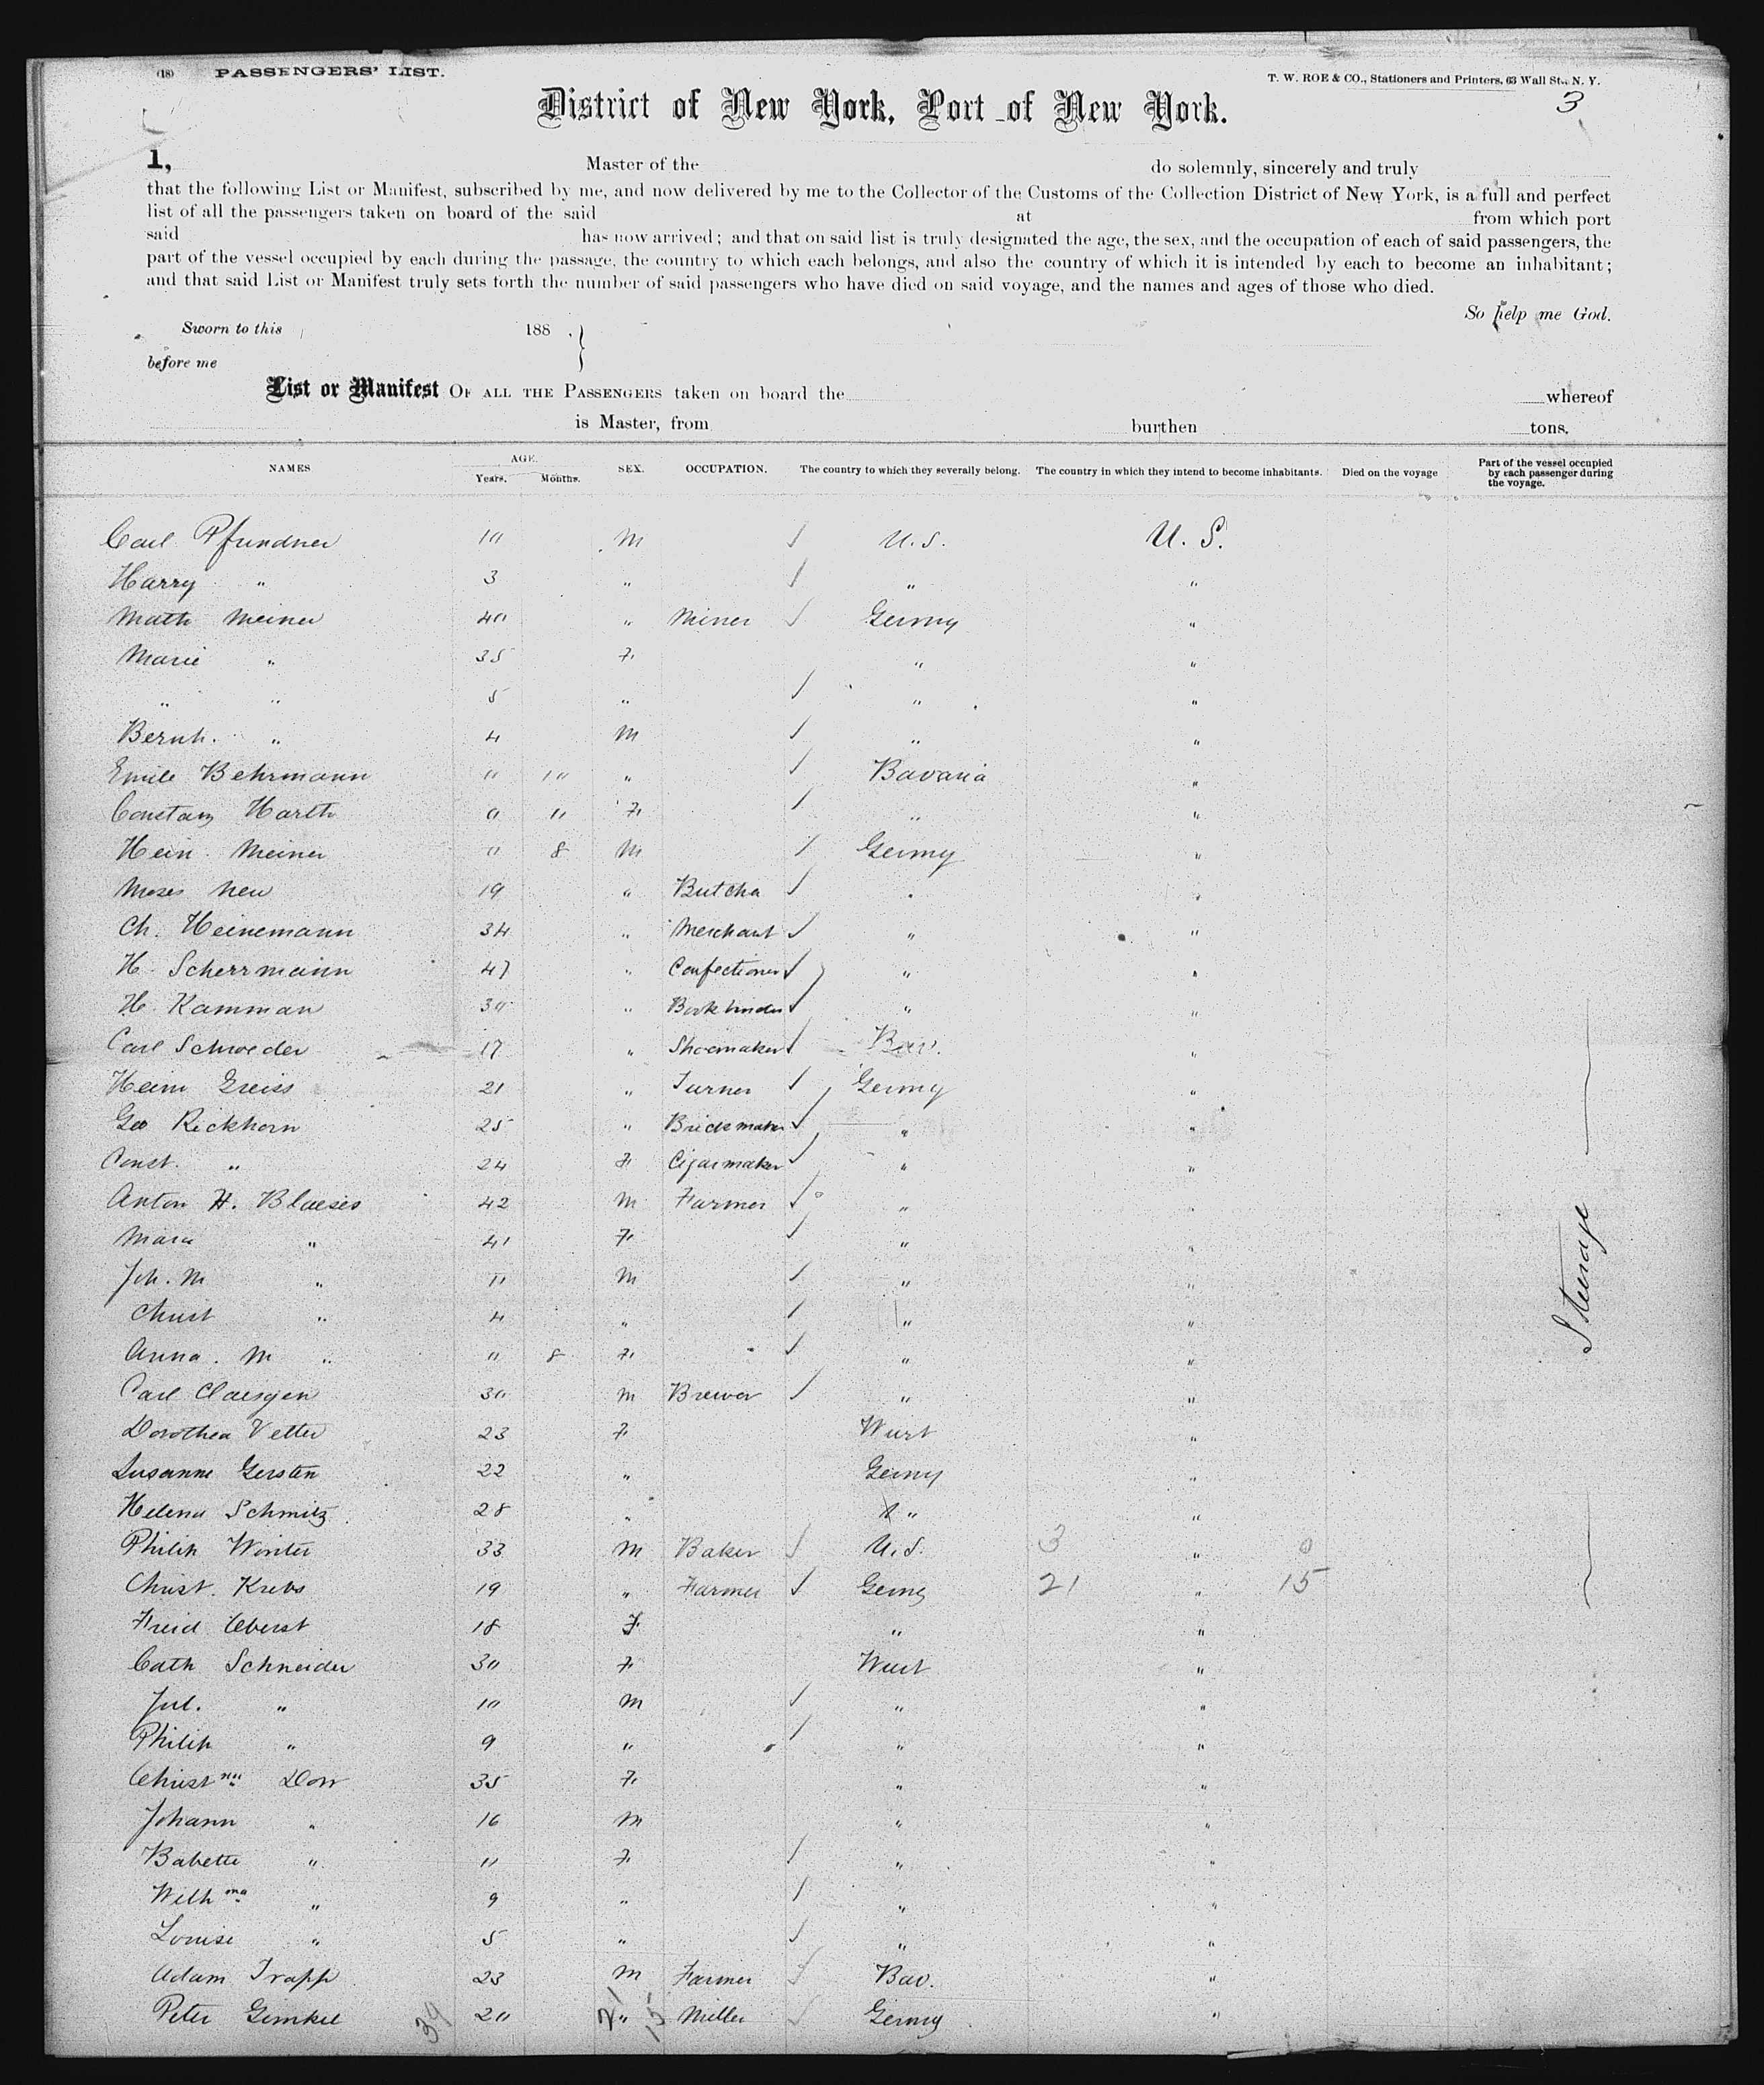 (18) PASSENGERS' LIST.
T. W. ROE & CO., Stationers and Printers, 63 Wall St., N. Y.
3
District of New York, Port of New York.
I, Master of the do solemnly, sincerely and truly
that the following List or Manifest, subscribed by me, and now delivered by me to the Collector of the Customs of the Collection District of New York, is a full and perfect
list of all the passengers taken on board of the said at from which port
said has now arrived; and that on said list is truly designated the age, the sex, and the occupation of each of said passengers, the
part of the vessel occupied by each during the passage, the country to which each belongs, and also the country of which it is intended by each to become an inhabitant;
and that said List or Manifest truly sets forth the number of said passengers who have died on said voyage, and the names and ages of those who died.
So help me God.
Sworn to this 188 . }
before me
List or Manifest OF ALL THE PASSENGERS taken on board the whereof
is Master, from burthen tons.
NAMES AGE. Years. Months. SEX. OCCUPATION. The country to which they severally belong. The country in which they intend to become inhabitants. Died on the voyage Part of the vessel occupied by each passenger during the voyage.
Carl Pfundner 10 M / U.S. U.S.
Harry " 3 " / " "
Math Meiner 40 " Miner / Germy "
Marie " 35 F " "
" " 5 " / " "
Bernh. " 4 M / " "
Emile Behrmann 0 10 " / Bavaria "
Constanz Harth 0 11 F / " "
Hein. Meiner 0 8 M / Germy "
Moses New 19 " Butcha / " "
Ch. Heinemann 34 " Merchant / " "
H. Scherrmann 47 " Confectioner / " "
H. Kamman 30 " Bookbinder / " "
Carl Schroeder 17 " Shoemaker / Bav. "
Heinr Greiss 21 " Turner / Germy "
Geo Rickhorn 25 " Bricksmaker / " "
Const. " 24 F Cigarmaker / " "
Anton H. Blaeses 42 M Farmer / " "
Maria " 41 F / " "
Joh. M " 11 M / " "
Christ " 4 " / " "
Anna. M " 0 8 F / " "
Carl Claesgen 30 M Brewer / " "
Dorothea Vetter 23 F Wurt "
Susanne Gersten 22 " Germy "
Helena Schmitz 28 " " "
Philip Winter 33 M Baker / U.S. 3 " 0
Christ. Krebs 19 " Farmer / Germy 21 " 15
Fried Oberst 18 F " "
Cath Schneider 30 F Wurt "
Jul. " 10 M / " "
Philip " 9 " / " "
Christ na Dorr 35 F " "
Johann " 16 M " "
Babette " 11 F / " "
Wilh ma " 9 " / " "
Louise " 5 " / " "
Adam Trapp 23 M Farmer / Bav. "
Peter Gimkel 39 20 21 " 15 Miller / Germy "
Steerage